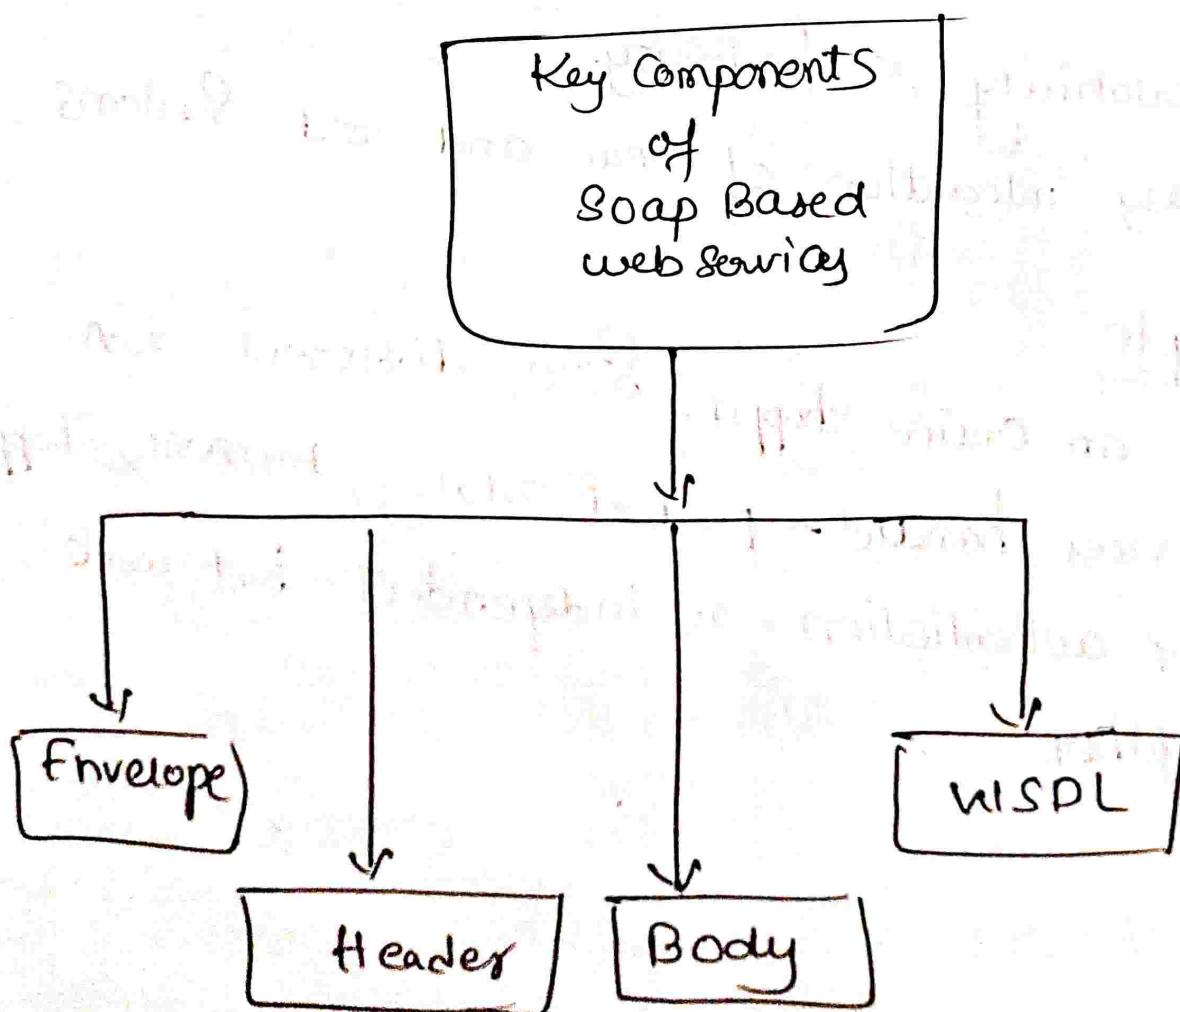 Key Components
of
Soap Based
web services
Envelope
WSDL
Header
Body